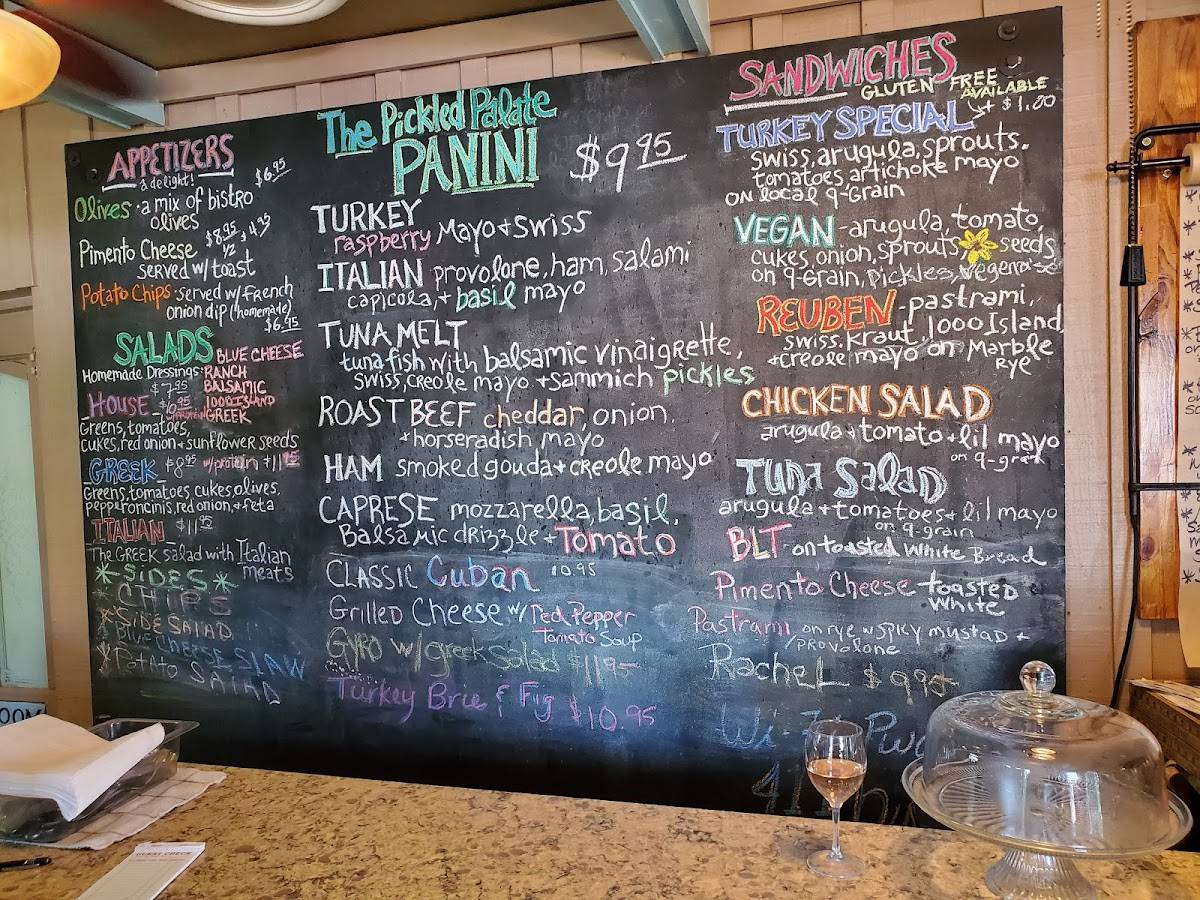 APPETIZERS
a delight!
$6.95
Olives - a mix of bistro
olives
$8.95
½ 4.95
Pimento Cheese
served w/ toast
Potato Chips - served w/ french
onion dip (homemade)
$6.95
SALADS
Homemade Dressings:
BLUE CHEESE
RANCH
BALSAMIC
1000 ISLAND
GREEK
HOUSE $7.95
Greens, tomatoes,
cukes, red onion + sunflower seeds
GREEK $8.95 w/protein +11.95
Greens, tomatoes, cukes, olives,
pepperoncinis, red onion, + feta
ITALIAN $11.95
The GREEK salad with Italian
meats
* SIDES *
* CHIPS
* SIDE SALAD
* BLUE CHEESE SLAW
* POTATO SALAD
The Pickled Palate
PANINI $9.95
TURKEY
raspberry Mayo + Swiss
ITALIAN provolone, ham, salami
capicola, + basil mayo
TUNA MELT
tuna fish with balsamic vinaigrette,
swiss, creole mayo + sammich pickles
ROAST BEEF cheddar, onion.
+ horseradish mayo
HAM smoked gouda + creole mayo
CAPRESE mozzarella, basil,
Balsamic drizzle + Tomato
CLASSIC Cuban 10.95
Grilled Cheese w/ Red Pepper
Tomato Soup
Gyro w/ greek Salad $11.95
Turkey Brie & Fig $10.95
SANDWICHES
GLUTEN FREE
AVAILABLE
+ $1.00
TURKEY SPECIAL
swiss, arugula, sprouts.
tomatoes artichoke mayo
ON local 9-Grain
VEGAN - arugula, tomato,
cukes, onion, sprouts, seeds,
on 9-Grain, pickles, vegenaise
REUBEN - pastrami,
swiss, kraut, 1000 Island,
+ creole mayo on Marble
Rye
CHICKEN SALAD
arugula + tomato + lil mayo
on 9-grain
Tuna Salad
arugula + tomatoes + lil mayo
on 9-grain
BLT - on toasted White Bread
Pimento Cheese toasted
White
Pastrami on rye w spicy mustad +
provolone
Rachel $9.95